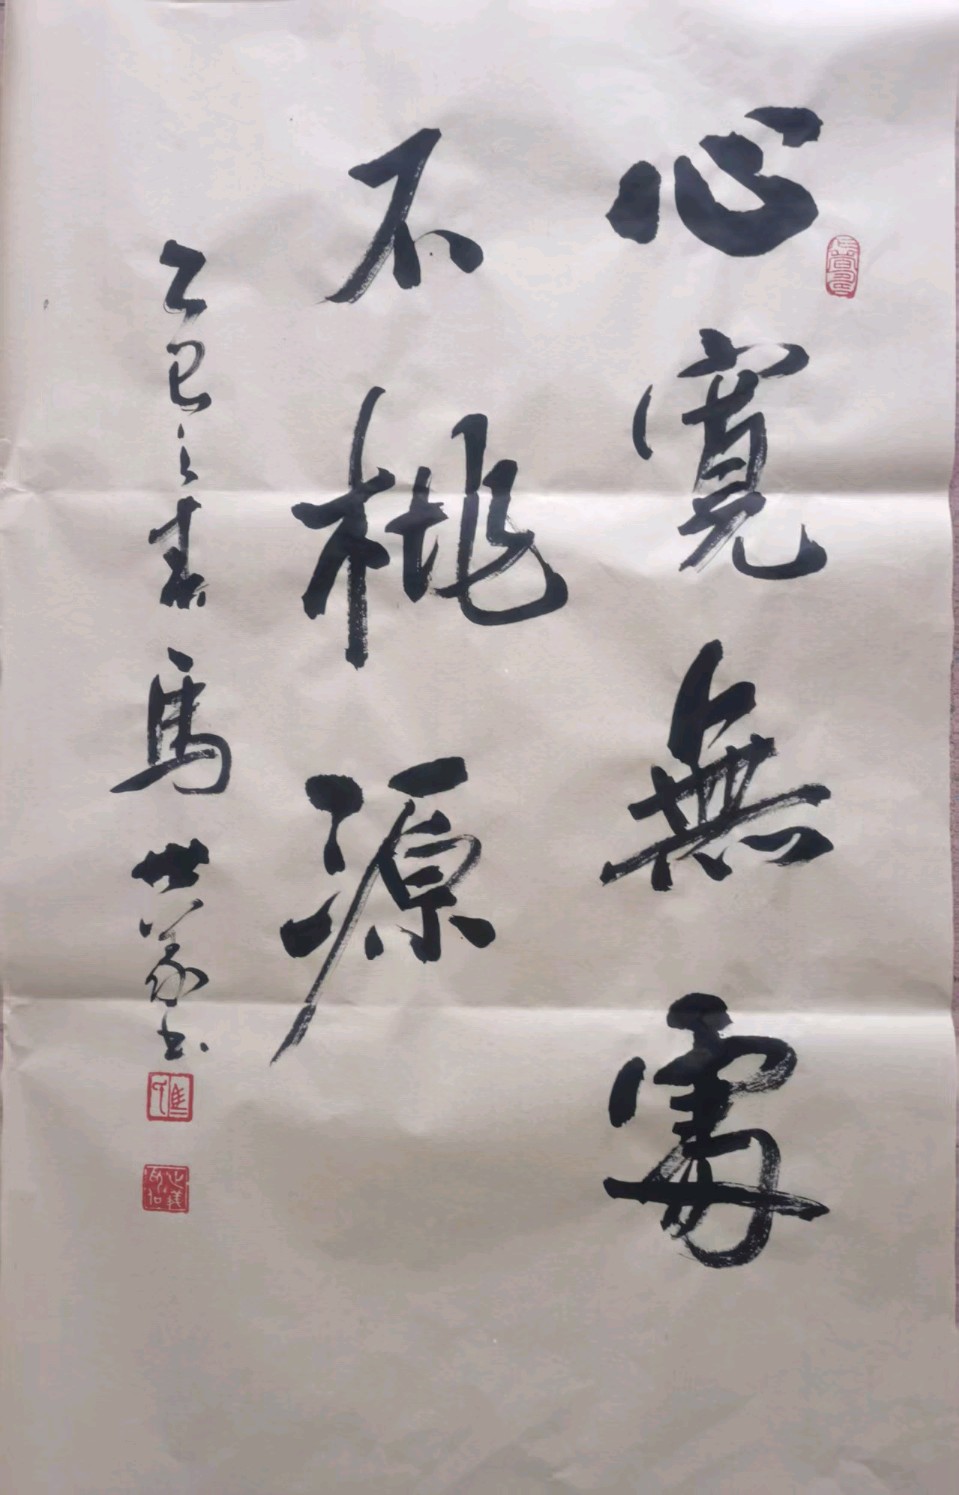 心寬無處
不桃源
乙巳之春馬世義书